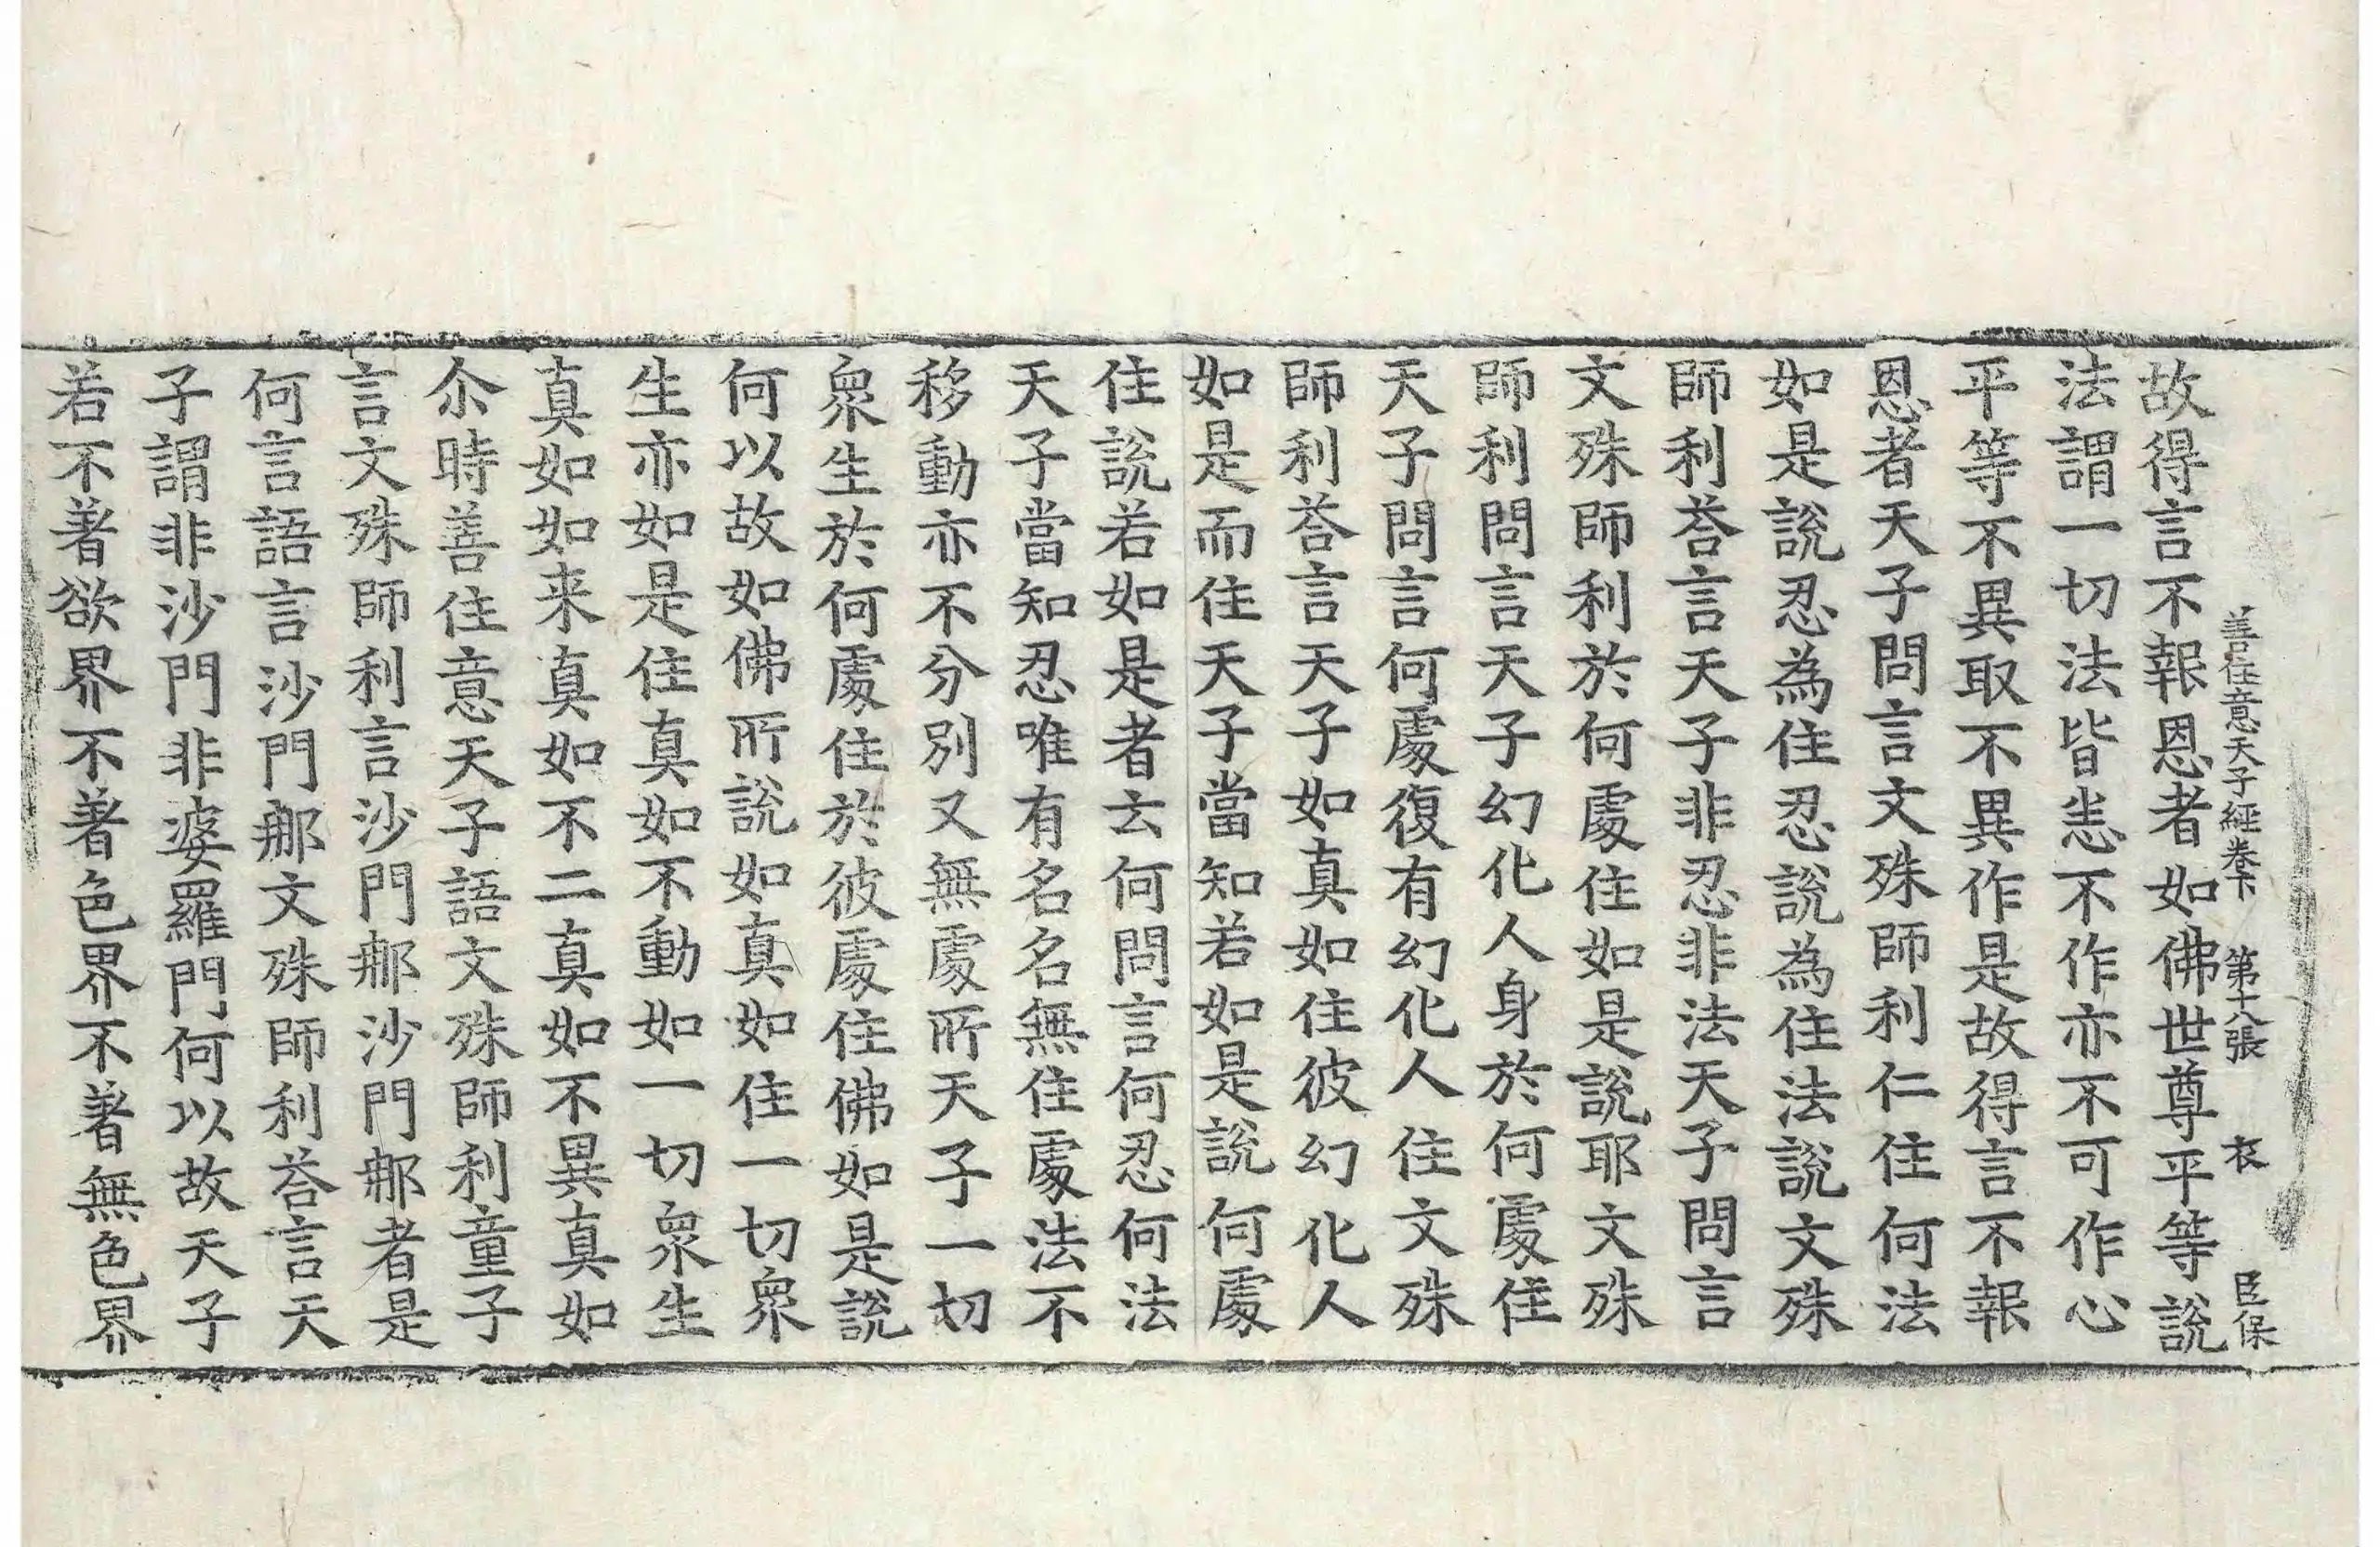 善住意天子經卷下　第十八張　衣　臣保
故得言不報恩者如佛世尊平等說
法謂一切法皆悉不作亦不可作心
平等不異取不異作是故得言不報
恩者天子問言文殊師利仁住何法
如是說忍為住忍說為住法說文殊
師利荅言天子非忍非法天子問言
文殊師利於何處住如是說耶文殊
師利問言天子幻化人身於何處住
天子問言何處復有幻化人住文殊
師利荅言天子如真如住彼幻化人
如是而住天子當知若如是說何處
住說若如是者云何問言何忍何法
天子當知忍唯有名名無住處法不
移動亦不分別又無處所天子一切
衆生於何處住於彼處住佛如是說
何以故如佛所說如真如住一切衆
生亦如是住真如不動如一切衆生
真如如来真如不二真如不異真如
尒時善住意天子語文殊師利童子
言文殊師利言沙門那沙門那者是
何言語言沙門那文殊師利荅言天
子謂非沙門非婆羅門何以故天子
若不著欲界不著色界不著無色界